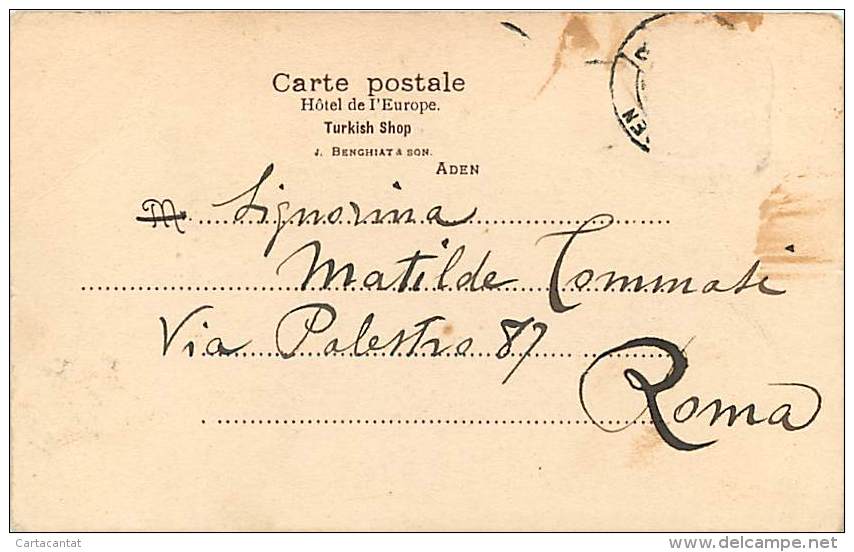 Carte postale
Hôtel de l'Europe.
Turkish Shop
J. BENGHIAT & SON.
ADEN
M Signorina
Matilde Tommasi
Via Palestro 87
Roma
Cartacantat
delcampe.net